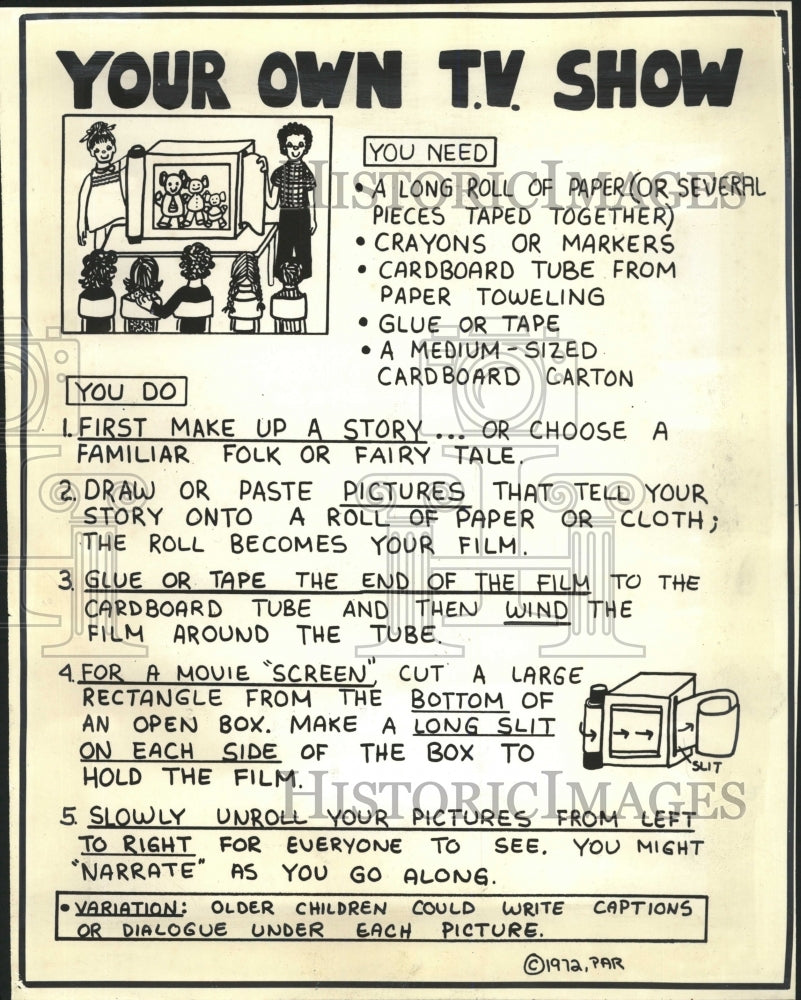 YOUR OWN T.V. SHOW
YOU NEED
• A LONG ROLL OF PAPER (OR SEVERAL
PIECES TAPED TOGETHER)
• CRAYONS OR MARKERS
• CARDBOARD TUBE FROM
PAPER TOWELING
• GLUE OR TAPE
• A MEDIUM-SIZED
CARDBOARD CARTON
YOU DO
1. FIRST MAKE UP A STORY... OR CHOOSE A
FAMILIAR FOLK OR FAIRY TALE.
2. DRAW OR PASTE PICTURES THAT TELL YOUR
STORY ONTO A ROLL OF PAPER OR CLOTH;
THE ROLL BECOMES YOUR FILM.
3. GLUE OR TAPE THE END OF THE FILM TO THE
CARDBOARD TUBE AND THEN WIND THE
FILM AROUND THE TUBE.
4. FOR A MOVIE "SCREEN", CUT A LARGE
RECTANGLE FROM THE BOTTOM OF
AN OPEN BOX. MAKE A LONG SLIT
ON EACH SIDE OF THE BOX TO
HOLD THE FILM.
SLIT
5. SLOWLY UNROLL YOUR PICTURES FROM LEFT
TO RIGHT FOR EVERYONE TO SEE. YOU MIGHT
"NARRATE" AS YOU GO ALONG.
• VARIATION: OLDER CHILDREN COULD WRITE CAPTIONS
OR DIALOGUE UNDER EACH PICTURE.
©1972, PAR
HISTORICIMAGES
HISTORICIMAGES